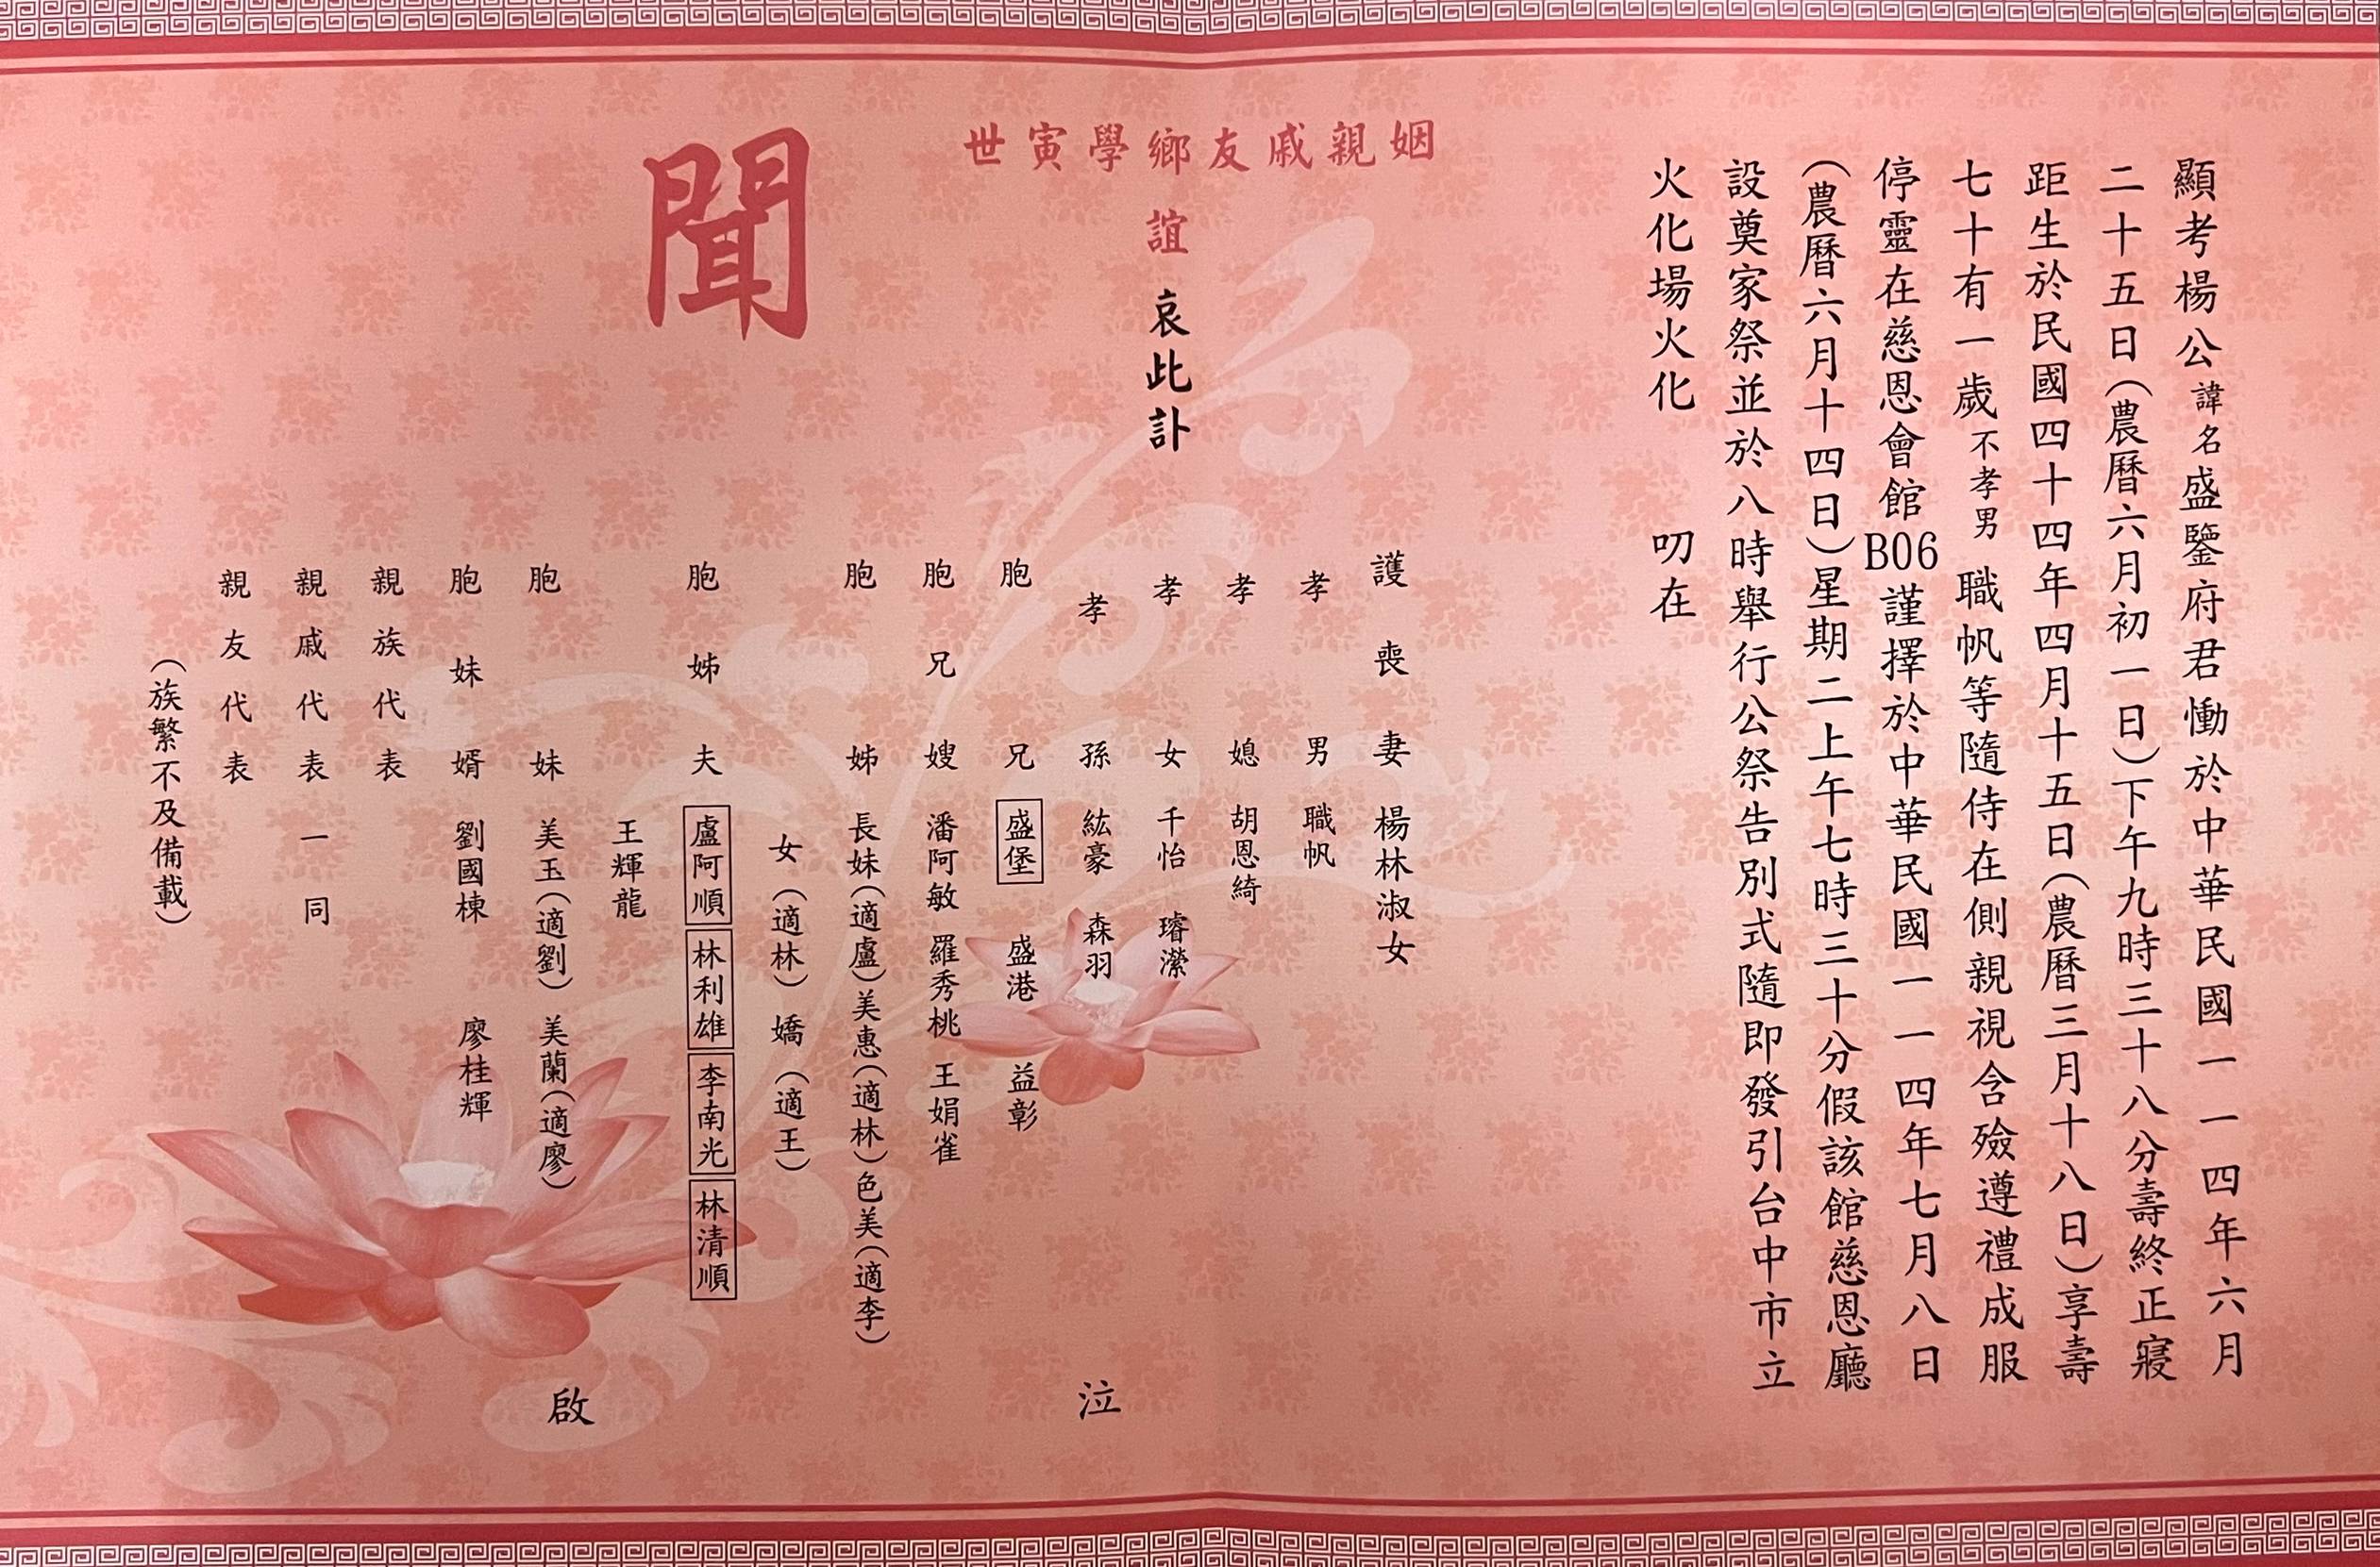 顯考楊公諱名盛鑒府君慟於中華民國一一四年六月
二十五日(農曆六月初一日)下午九時三十八分壽終正寢
距生於民國四十四年四月十五日(農曆三月十八日)享壽
七十有一歲不孝男職帆等隨侍在側親視含殮遵禮成服
停靈在慈恩會館B06謹擇於中華民國一一四年七月八日
(農曆六月十四日)星期二上午七時三十分假該館慈恩廳
設奠家祭並於八時舉行公祭告別式隨即發引台中市立
火化場火化 叨在
姻親戚友鄉學寅世
誼 哀此訃
聞
護喪妻 楊林淑女
孝男 職帆
孝媳 胡恩綺
孝女 千怡 璿瀠
孝孫 紘豪 森羽
胞兄 盛堡 盛港 益彰
胞兄嫂 潘阿敏 羅秀桃 王娟雀
胞姊 長妹(適盧)美惠(適林)色美(適李)
女(適林) 嬌(適王)
胞姊夫 盧阿順 林利雄 李南光 林清順
王輝龍
胞妹 美玉(適劉) 美蘭(適廖)
胞妹婿 劉國棟 廖桂輝
親族代表
親戚代表一同
親友代表
(族繁不及備載)
泣
啟